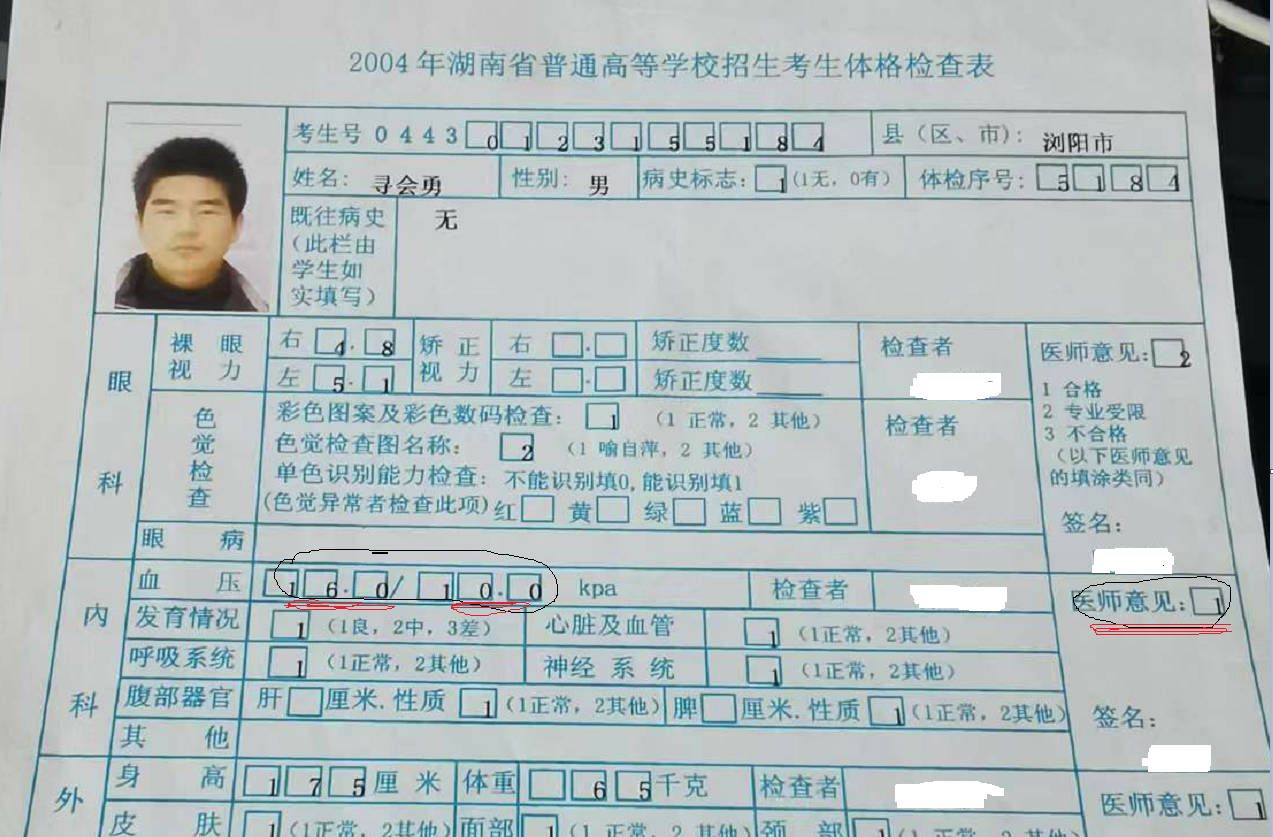 2004年湖南省普通高等学校招生考生体格检查表
考生号 0 4 4 3 0 1 2 3 1 5 5 1 8 4 县（区、市）: 浏阳市
姓名: 寻会勇 性别: 男 病史标志: 1 (1无, 0有) 体检序号: 5 1 8 4
既往病史 无
（此栏由
学生如
实填写）
眼科
裸眼视力 右 4.8 矫正视力 右 . 矫正度数 检查者
左 5.1 左 . 矫正度数
医师意见: 2
1 合格
2 专业受限
3 不合格
（以下医师意见
的填涂类同）
签名:
色觉检查
彩色图案及彩色数码检查: 1 (1 正常, 2 其他) 检查者
色觉检查图名称: 2 (1 喻自萍, 2 其他)
单色识别能力检查: 不能识别填0, 能识别填1
(色觉异常者检查此项) 红 黄 绿 蓝 紫
眼病
内科
血压 1 6.0/ 1 0.0 kpa 检查者 医师意见: 1
发育情况 1 (1良, 2中, 3差) 心脏及血管 1 (1正常, 2其他)
呼吸系统 1 (1正常, 2其他) 神经系统 1 (1正常, 2其他)
腹部器官 肝 厘米.性质 1 (1正常, 2其他) 脾 厘米.性质 1 (1正常, 2其他) 签名:
其他
外
身高 1 7 5 厘米 体重 6 5 千克 检查者 医师意见: 1
皮肤 1 (1正常, 2其他) 面部 1 (1 正常, 2其他) 颈部 1 (1正常, 2其他)